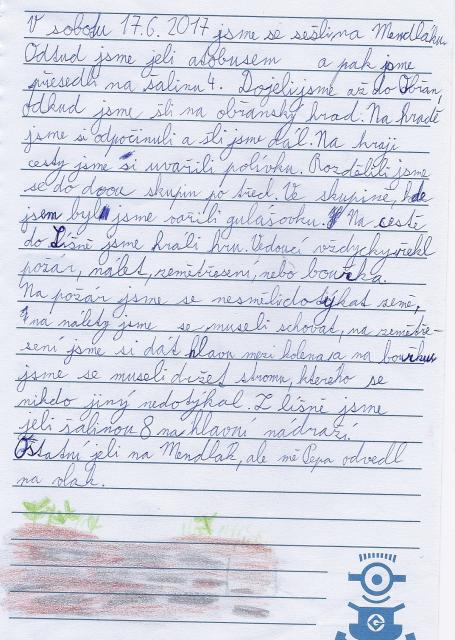 V sobotu 17.6. 2017 jsme se sešli na Mendláku.
Odtud jsme jeli autobusem a pak jsme
přesedli na šalinu 4. Dojeli jsme až do Obřan,
odtud jsme šli na obřanský hrad. Na hradě
jsme si odpočinuli a šli jsme dál. Na kraji
cesty jsme si uvařili polívku. Rozdělili jsme
se do dvou skupin po třech. Ve skupině, kde
jsem byl jsme vařili gulášovku. Na cestě
do Líšně jsme hráli hru. Vedoucí vždycky řekl
požár, nálet, zemětřesení, nebo bouřka.
Na požár jsme se nesměli dotýkat země,
na nálety jsme se museli schovat, na zemětře-
sení jsme si dát hlavu mezi kolena a na bouřku
jsme se museli držet stromu, kterého se
nikdo jiný nedotýkal. Z líšně jsme
jeli šalinou 8 na hlavní nádraží.
Ostatní jeli na Mendlák, ale mě Pepa odvedl
na vlak.
G